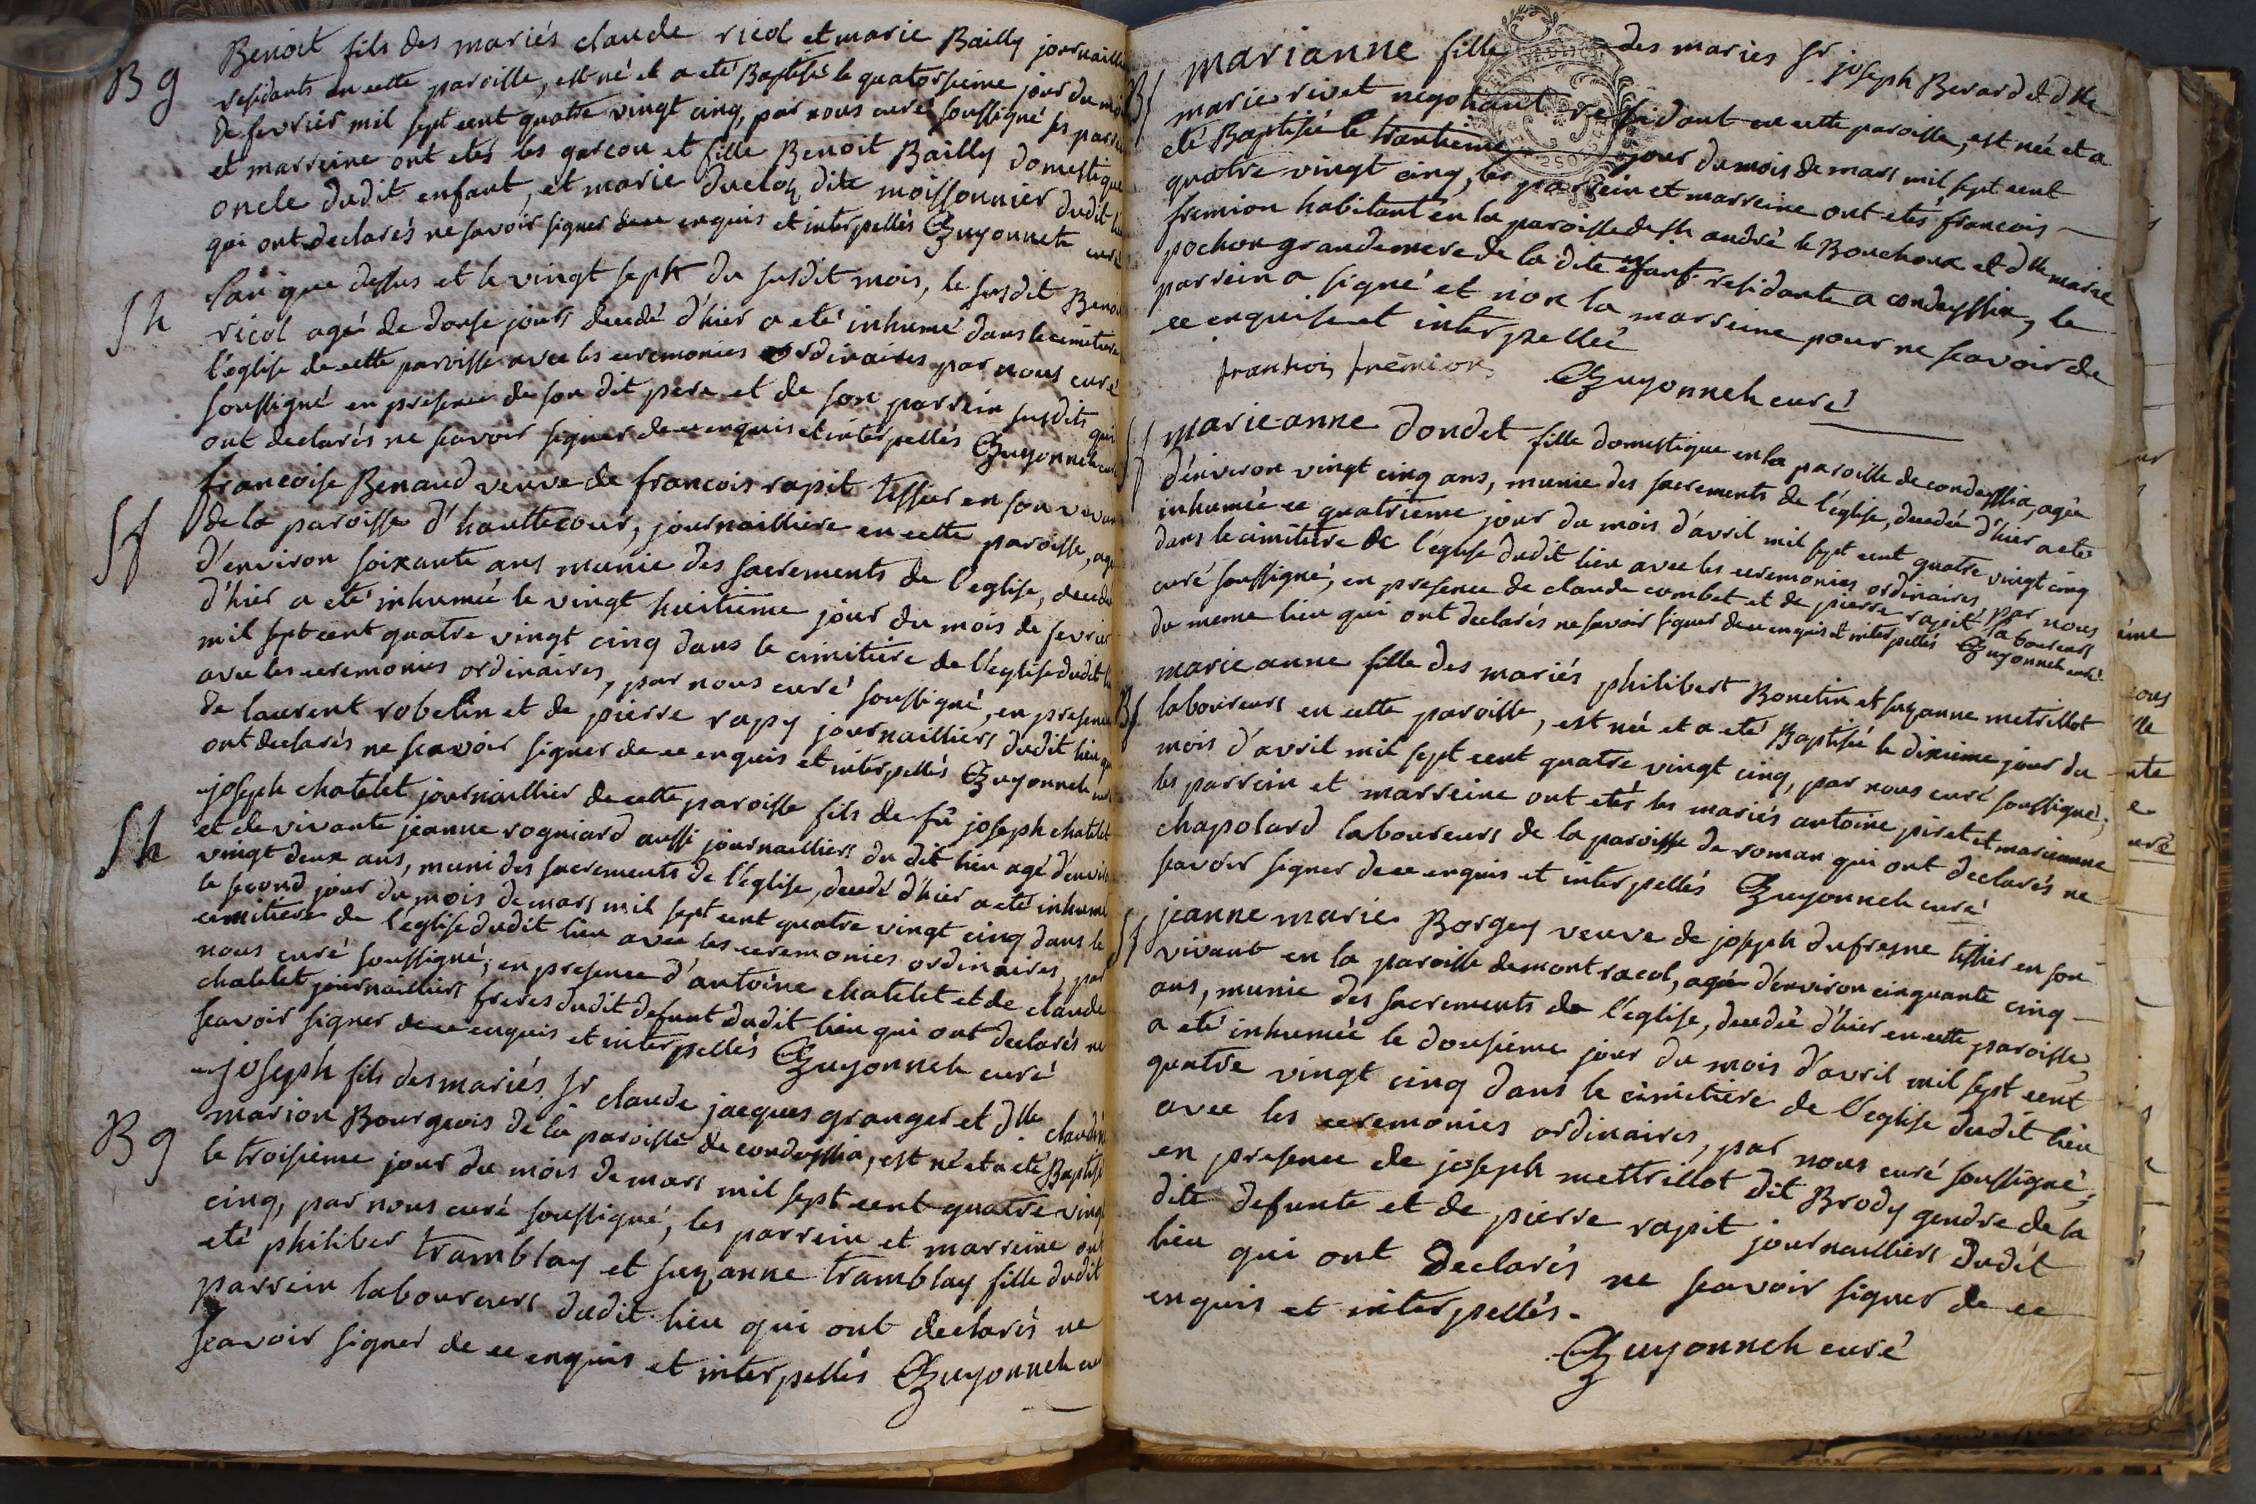 B g
Benoit fils des mariés claude ricol et marie Bailly journaill
residants en cette paroisse, est né et a eté Baptisé le quatorsieme jour du moi
de fevrier mil sept cent quatre vingt cinq, par nous curé soussigné ses parrei
et marreine ont etés les garcon et fille Benoit Bailly domestique
oncle dudit enfant, et marie dite moissonnier dudit
qui ont declarés ne savoir signer de ce enquis et interpellés Guyonneth curé
S h
l'an que dessus et le vingt sept du susdit mois, le susdit Benoi
ricol agé de douse jours decedé d'hier a eté inhumé dans le cimetiere
l'église de cette paroisse avec les ceremonies ordinaires par nous curé
soussigné en presence de son dit pere et de son parrein susdits qui
ont declarés ne scavoir signer de ce enquis et interpellés Guyonneth curé
S f
francoise Benaud veuve de francois rapit tisseur en son vivan
de la paroisse d'hautecour, journailliere en cette paroisse, agé
d'environ soixante ans munie des sacrements de l'eglise, decedé
d'hier a eté inhumée le vingt huitieme jour du mois de fevrier
mil sept cent quatre vingt cinq dans le cimitiere de l'église dudit
avec les ceremonies ordinaires, par nous curé soussigné, en presence
de laurent robelin et de pierre rapy journailliers dudit lieu qui
ont declarés ne scavoir signer de ce enquis et interpellés Guyonneth curé
S h
joseph chatelet journaillier de cette paroisse fils de fû joseph chatelet
et de vivante jeanne rogniard aussi journailliers du dit lieu agé d'enviro
vingt deux ans, muni des sacrements de l'église, decedé d'hier a eté inhumé
le second jour du mois de mars mil sept cent quatre vingt cinq dans le
cimitiere de l'église dudit lieu avec les ceremonies ordinaires, par
nous curé soussigné; en presence d'antoine chatelet et de claude
chatelet journailliers freres dudit defunt dudit lieu qui ont declarés ne
scavoir signer de ce enquis et interpellés Guyonneth curé
B g
joseph fils des mariés Sr claude jacques granger et dlle claudin
marion Bourgeois de la paroisse de condeyssia, est né et a eté Baptisé
le troisieme jour du mois de mars mil sept cent quatre vingt
cinq, par nous curé soussigné, les parrein et marreine ont
eté philiber tramblay et suzanne tramblay fille dudit
parrein laboureurs dudit lieu qui ont declarés ne
scavoir signer de ce enquis et interpellés Guyonneth curé
B f
marianne fille des mariés Sr joseph Berard et dlle
marie rivet negotiant residant en cette paroisse, est née et a
eté Baptisée le trantieme jour du mois de mars mil sept cent
quatre vingt cinq, les parrein et marreine ont etés francois
fremion habitant en la paroisse de st andré le Bouchoux et dlle marie
pochon grandemere de la dite enfant residante a condeyssia, le
parrein a signé et non la marreine pour ne scavoir de
ce enquise et interpellée
franhois fremion Guyonneth curé
S f
marieanne Dondet fille domestique en la paroisse de condeyssia, agée
d'environ vingt cinq ans, munie des sacrements de l'église, decedée d'hier a eté
inhumée ce quatrieme jour du mois d'avril mil sept cent quatre vingt cinq
dans le cimitiere de l'église dudit lieu avec les ceremonies ordinaires par nous
curé soussigné, en presence de claude combet et de pierre rapit laboureurs
du meme lieu qui ont declarés ne savoir signer de ce enquis et interpellés Guyonneth curé
B f
marieanne fille des mariés philibert Bonetin et suzanne metrillot
laboureurs en cette paroisse, est née et a eté Baptisée le dixieme jour du
mois d'avril mil sept cent quatre vingt cinq, par nous curé soussigné;
les parrein et marreine ont etés les mariés antoine piret et marieanne
chapolard laboureurs de la paroisse de roman qui ont declarés ne
scavoir signer de ce enquis et interpellés Guyonneth curé
S f
jeanne marie Borgey veuve de joseph dufresne tissier en son
vivant en la paroisse de mont racol, agée d'environ cinquante cinq
ans, munie des sacrements de l'église, decedée d'hier en cette paroisse,
a eté inhumée le dousieme jour du mois d'avril mil sept cent
quatre vingt cinq dans le cimitiere de l'église dudit lieu
avec les ceremonies ordinaires, par nous curé soussigné;
en presence de joseph mettrillot dit Brody gendre de la
dite defunte et de pierre rapit journailliers dudit
lieu qui ont declarés ne scavoir signer de ce
enquis et interpellés.
Guyonneth curé